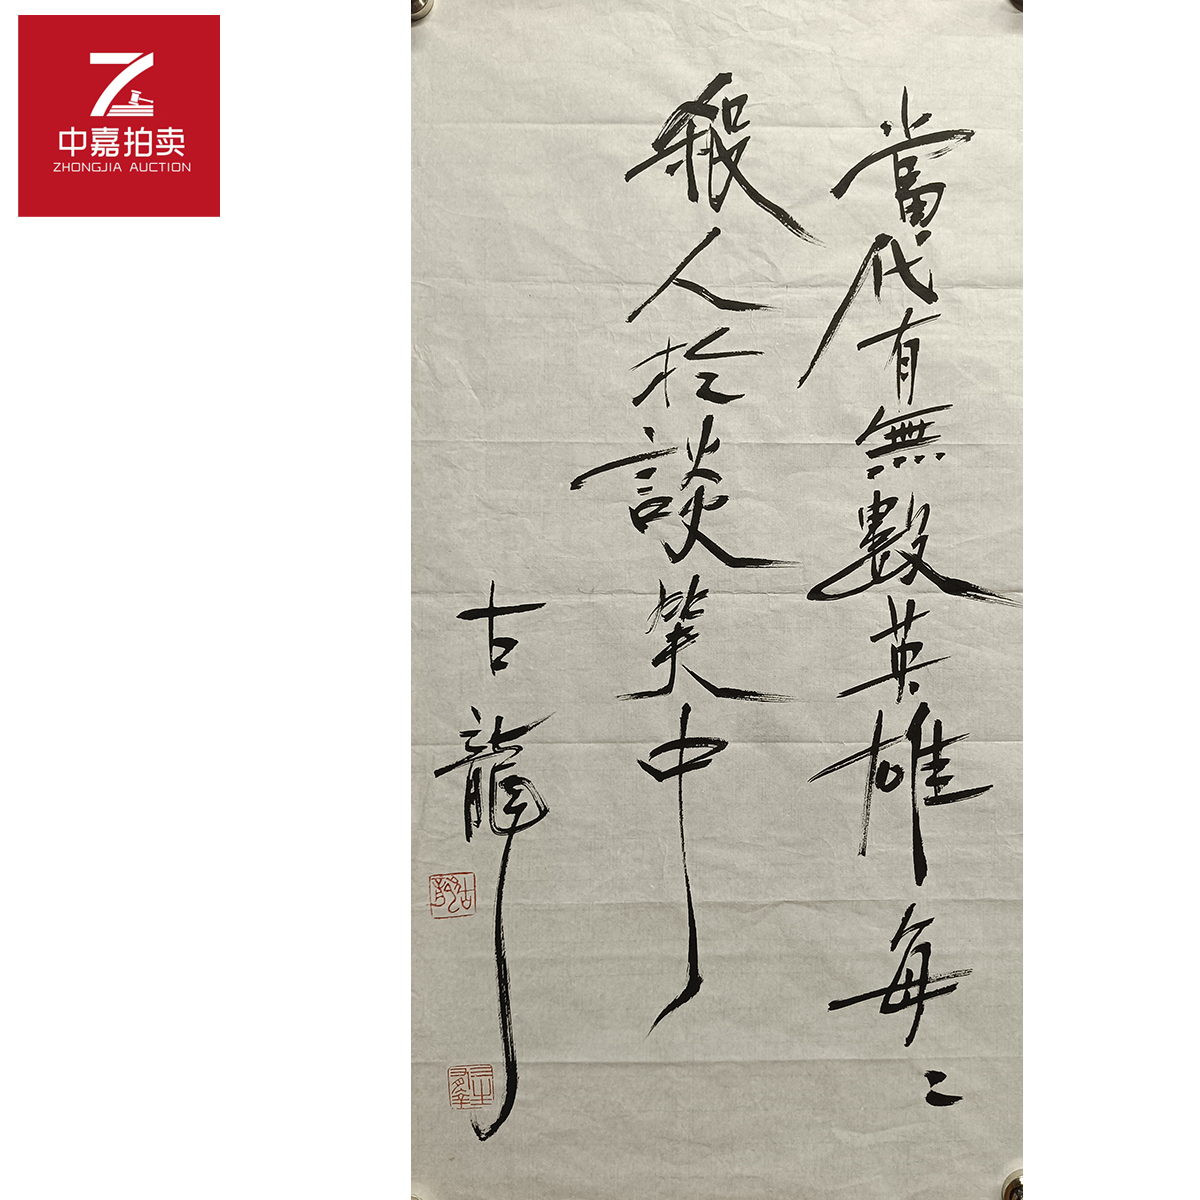 中嘉拍卖
ZHONGJIA AUCTION
當代有無數英雄每〻
殺人於談笑中
古龍